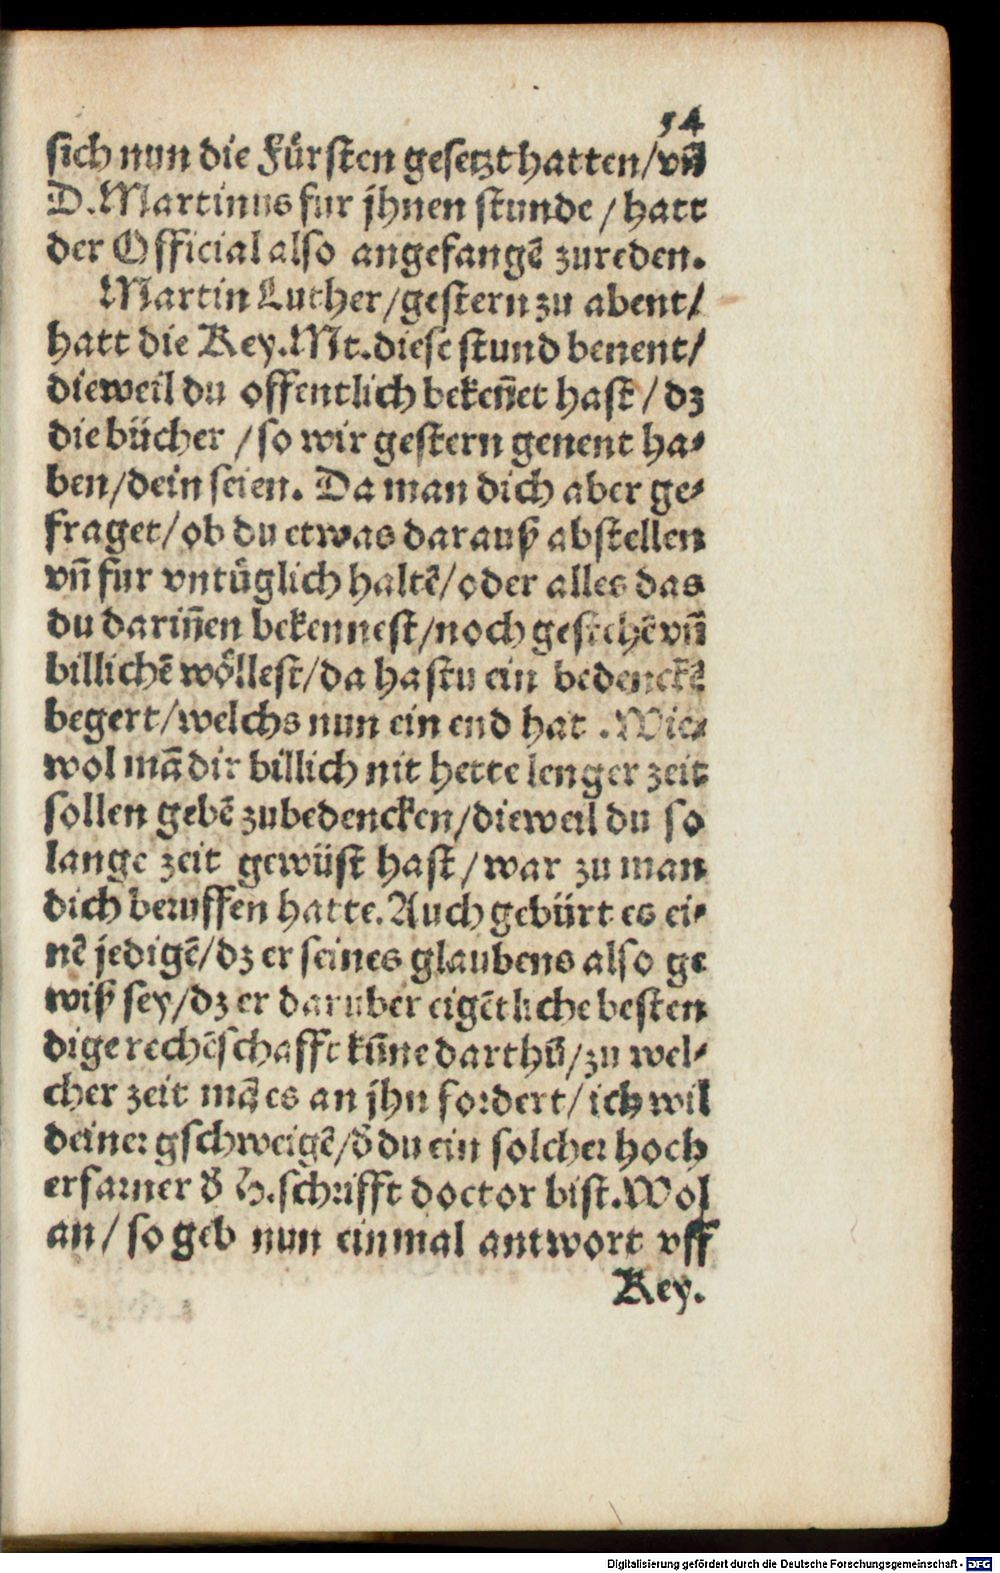 54
sich nun die Fürsten gesetzt hatten/ vñ
D. Martinus fur jhnen stunde / hatt
der Official also angefangẽ zureden.
Martin Luther/ gestern zu abent/
hatt die Key. Mt. diese stund benent/
dieweil du offentlich bekeñet hast / dz
die bücher / so wir gestern genent ha⸗
ben/ dein seien. Da man dich aber ge⸗
fraget/ ob du etwas darauß abstellen
vñ für vntüglich haltẽ/ oder alles das
du dariñen bekennest/ noch gestehẽ vñ
billichẽ wöllest/ da hastu ein bedenckẽ
begert/ welchs nun ein end hat . Wie⸗
wol mã dir billich nit hette lenger zeit
sollen gebẽ zubedencken/ dieweil du so
lange zeit gewüst hast / war zu man
dich beruffen hatte. Auch gebürt es ei⸗
nẽ jedigẽ/ dz er seines glaubens also ge
wiß sey/ dz er daruber eigẽtliche besten
dige rechẽschafft kũne darthũ/ zu wel⸗
cher zeit mã es an jhn fordert/ ich wil
deiner gschweigẽ/ d̃ du ein solcher hoch
erfarner d̃ H. schrifft doctor bist. Wol
an / so geb nun einmal antwort vff
Key.
Digitalisierung gefördert durch die Deutsche Forschungsgemeinschaft - DFG